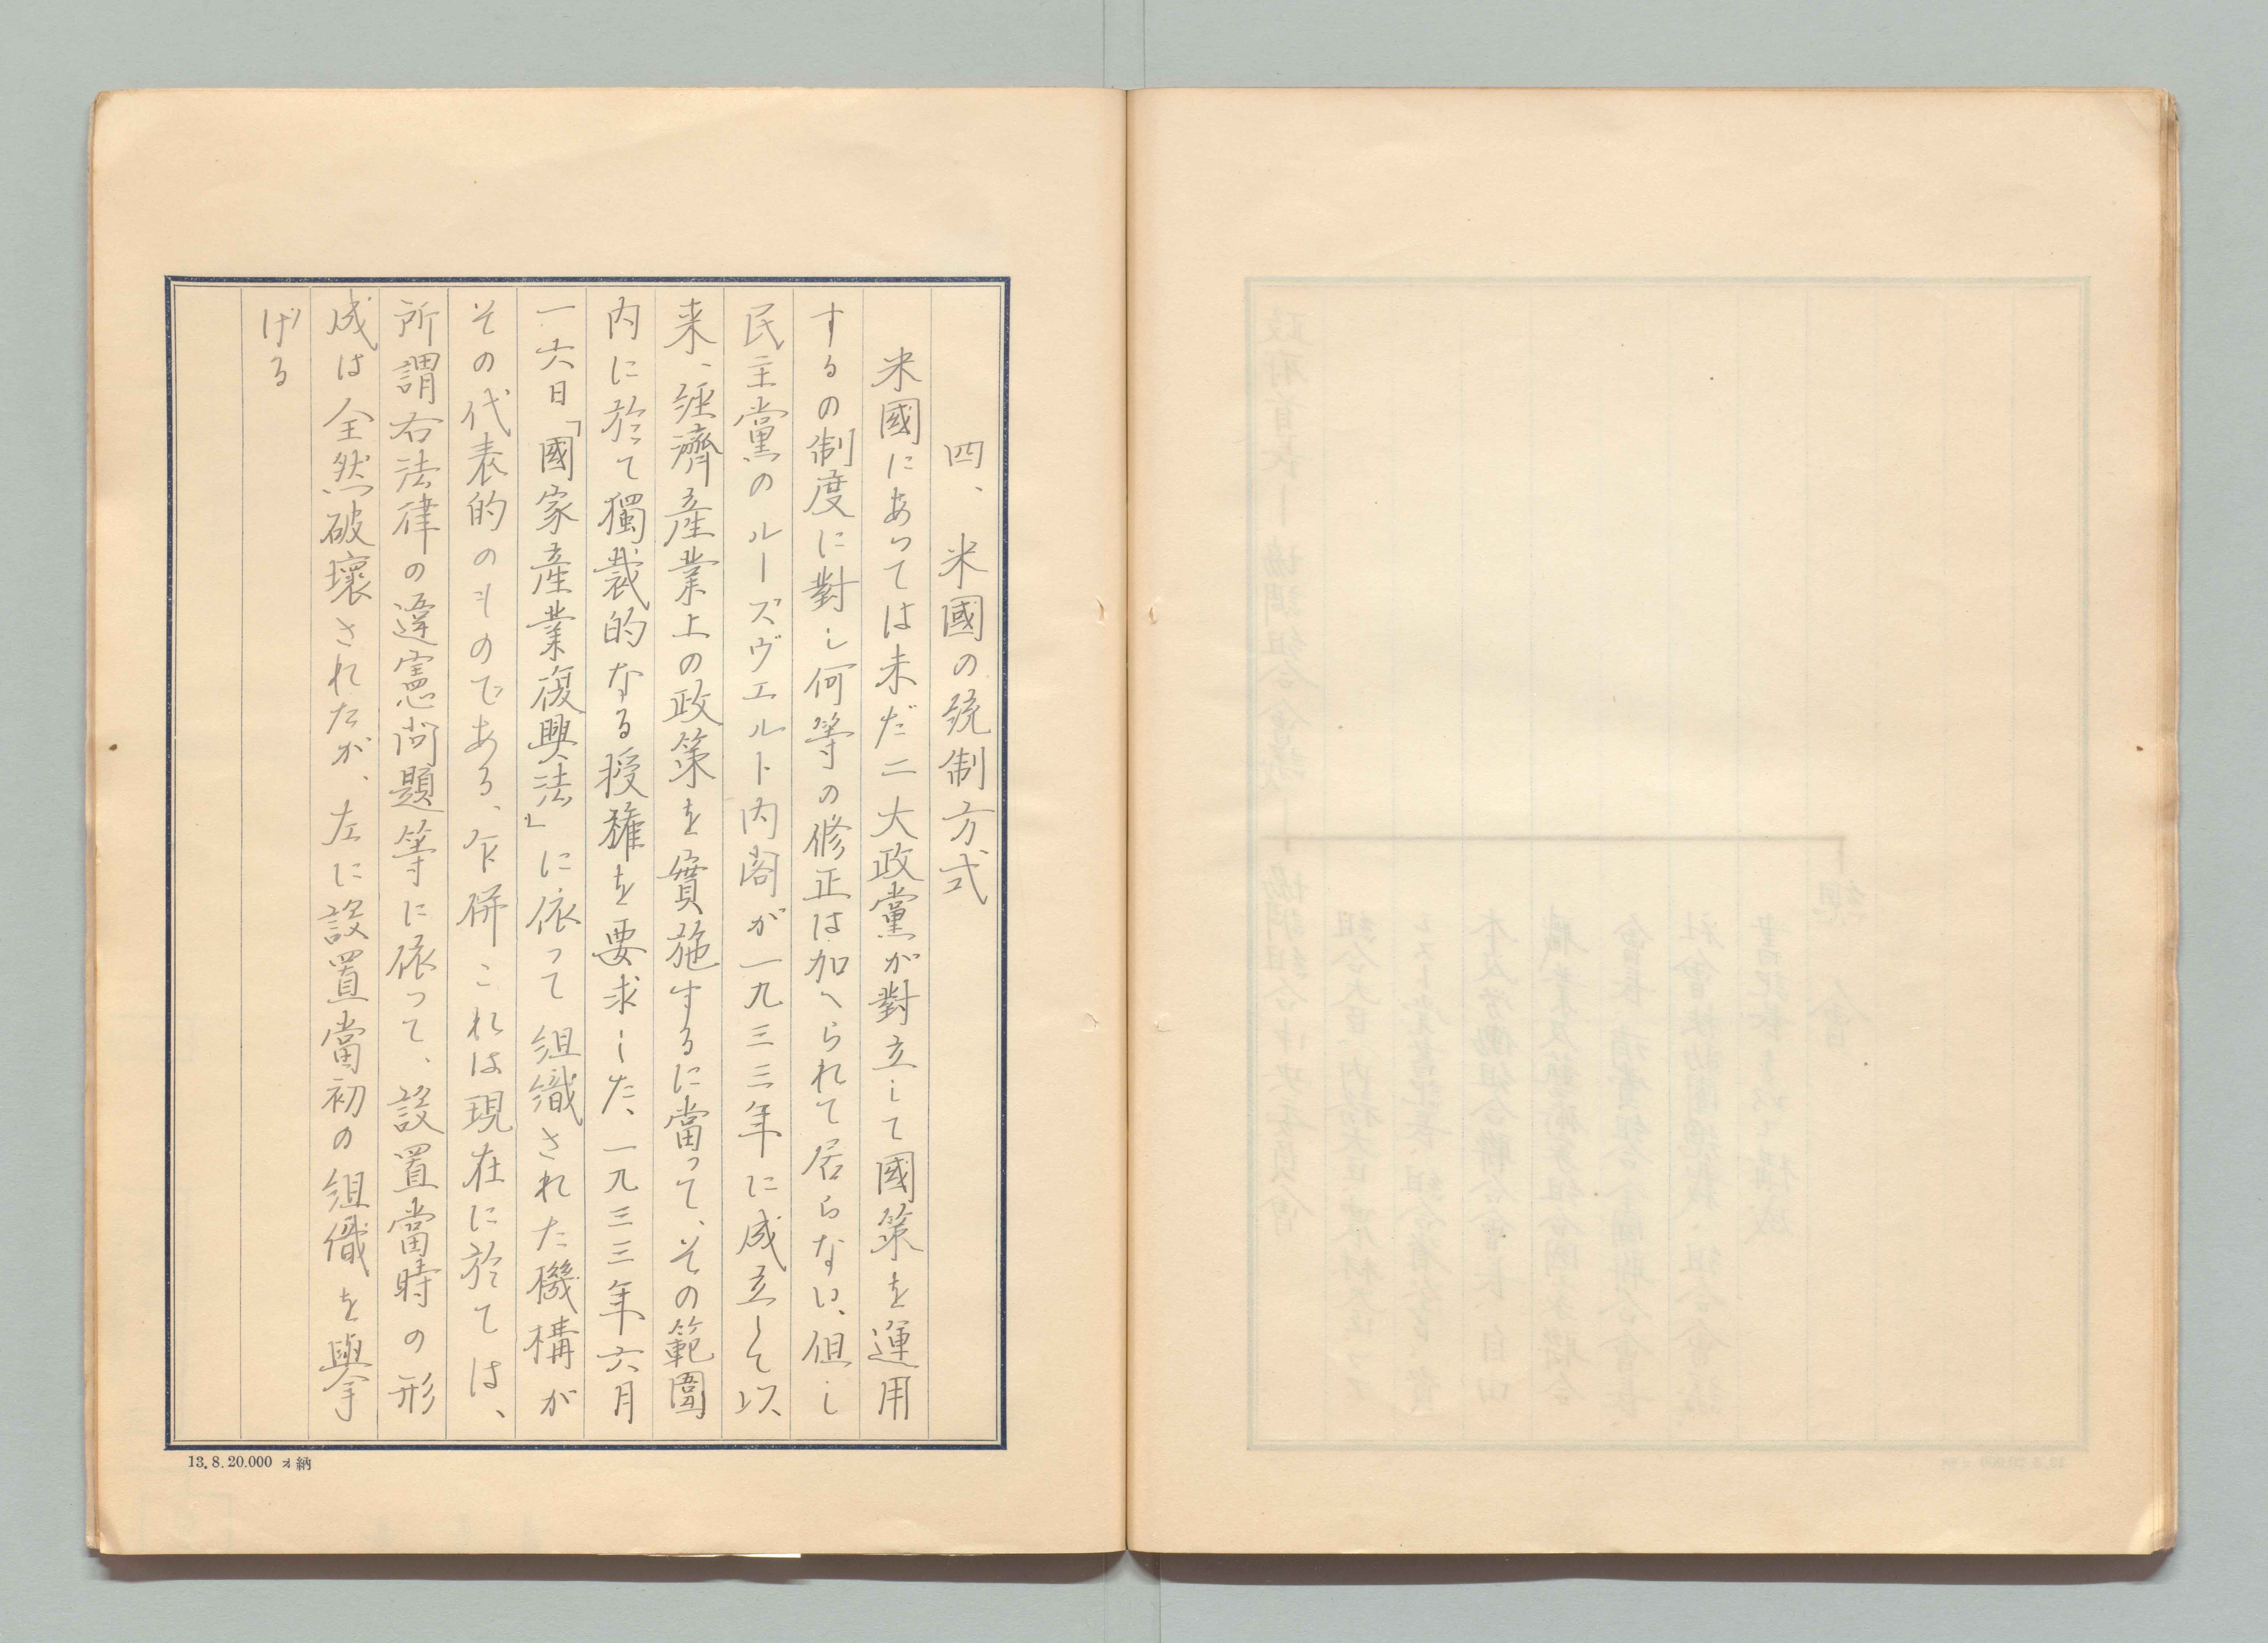 四、米國の統制方式
米國にあっては未だ二大政黨が對立して國策を運用
するの制度に對し何等の修正は加へられて居らない、但し
民主黨のルーズヴェルト内閣が一九三三年に成立して以
来、経濟産業上の政策を實施するに當って、その範圍
内に於て獨裁的なる授權を要求した、一九三三年六月
一六日「國家産業復興法」に依って組織された機構が
その代表的のものである、乍併これは現在に於ては、
所謂右法律の違憲問題等に依って、設置當時の形
成は全然破壞されたが、左に設置當初の組織を擧
げる
13.8.20.000 ォ納